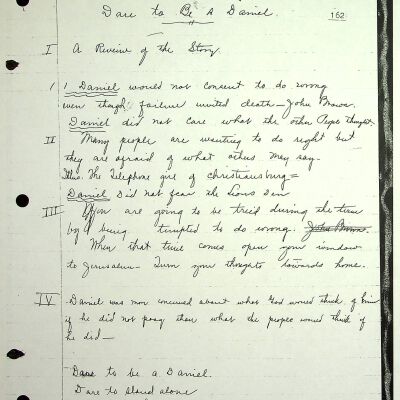 Dare to Be A Daniel.
162
I A Review of the Story
1 1 Daniel would not consent to do wrong
even though failure united death - John Brown.
Daniel did not care what the other People thought.
II Many people are wanting to do right but
they are afraid of what others may say.
Illus The Telephone girl of Christiansburg =
Daniel Did not fear the Lions Den
III You are going to be tried during the time
by being tempted to do wrong. John Brown.
When that time comes open your window
to Jerusalem - Turn your thoughts towards home.
IV Daniel was more concerned about what God would think of him
if he did not pray than what the people would think if
he did -
Dare to be a Daniel.
Dare to stand alone